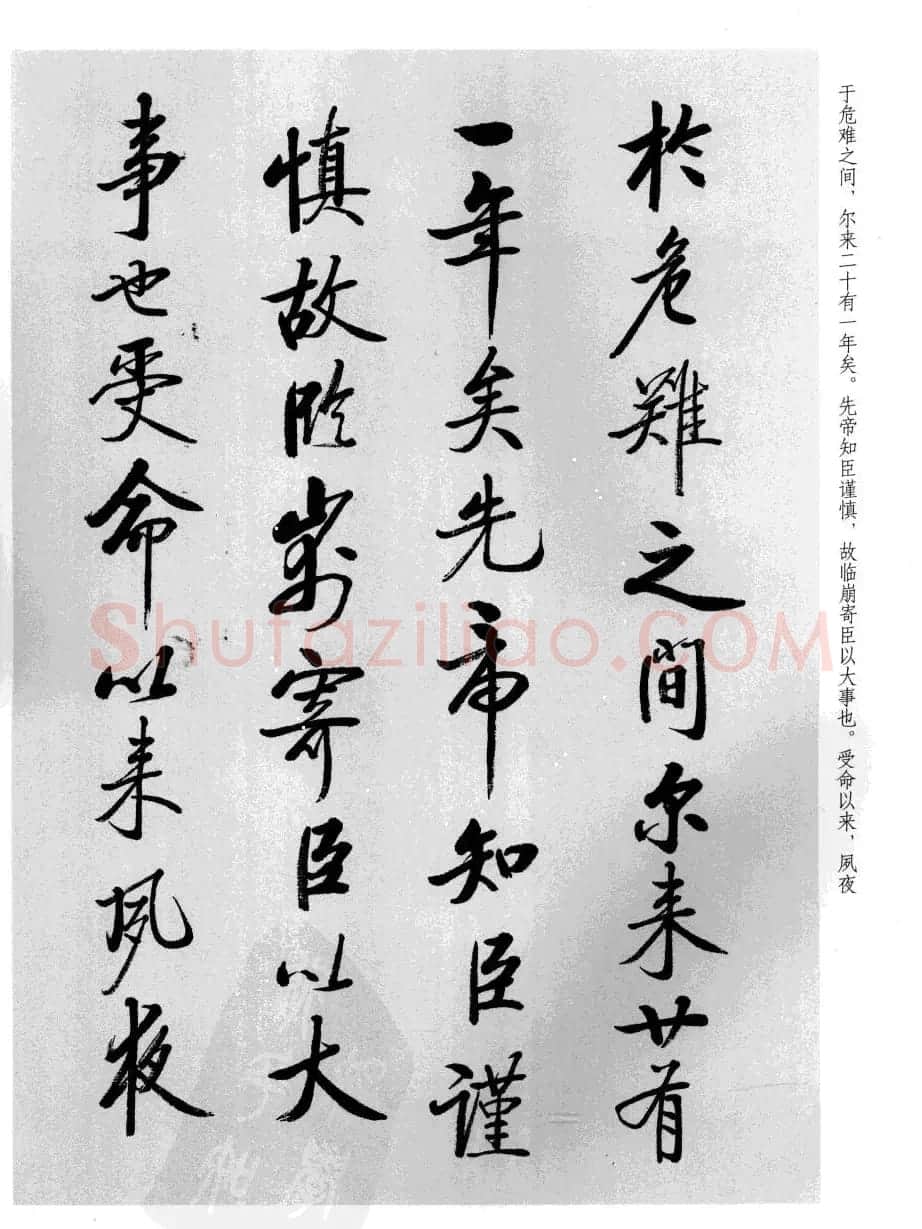 于危难之间，尔来二十有一年矣。先帝知臣谨慎，故临崩寄臣以大事也。受命以来，夙夜
於危難之間尔来廿有
一年矣先帝知臣謹
慎故臨崩寄臣以大
事也受命以来夙夜
Shufaziliao.COM